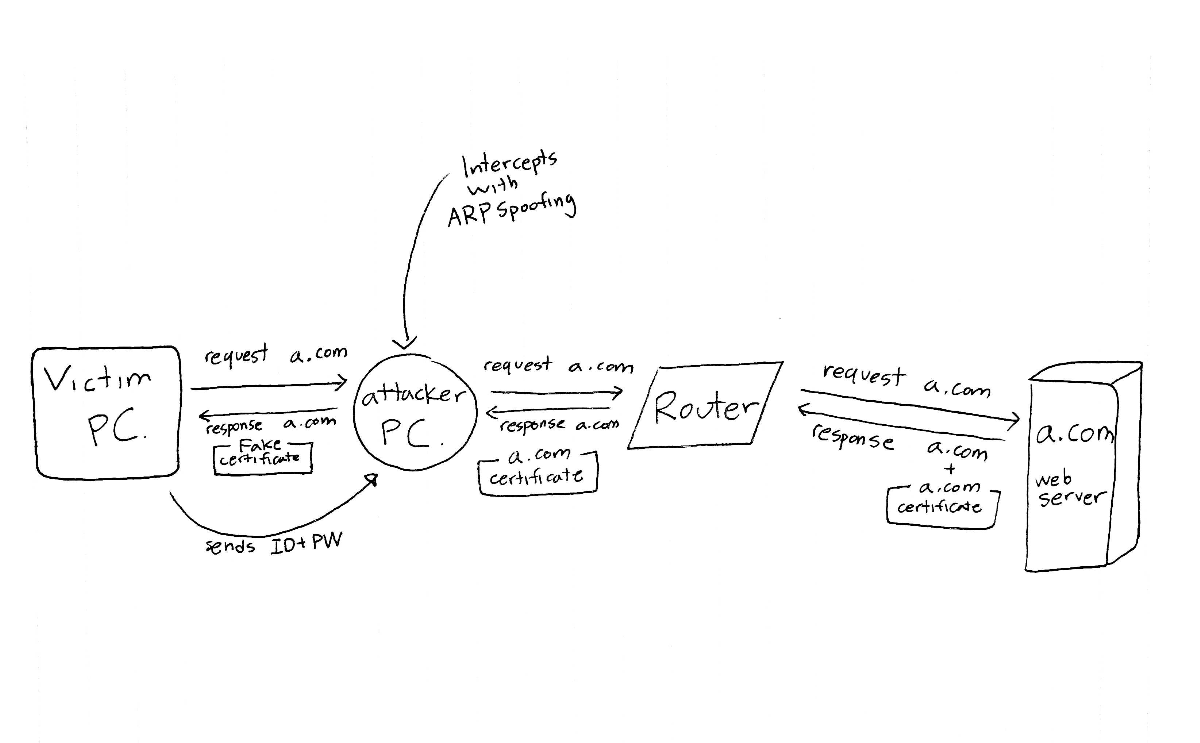 Intercepts
with
ARP Spoofing
Victim
PC.
request a.com
response a.com
Fake
certificate
sends ID+PW
attacker
PC.
request a.com
response a.com
a.com
certificate
Router
request a.com
response a.com
+
a.com
certificate
a.com
web
server